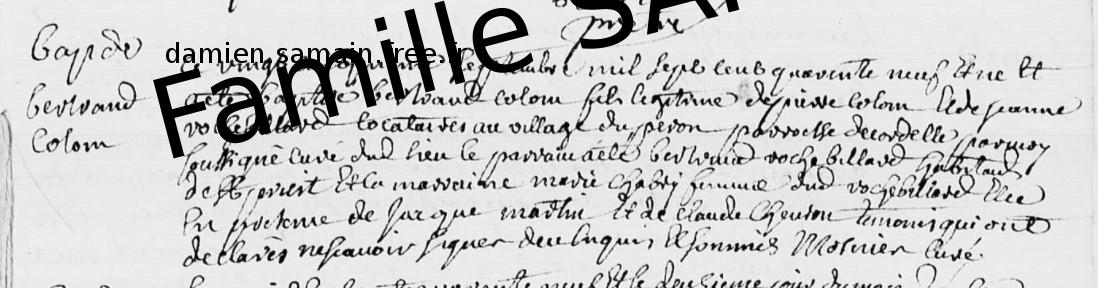 prêtre
Bap de
bertrand
Colom
damien.samain.free.fr
Famille SA
Le vingt septembre mil sept cent quarante neuf Est né Et
a été baptisé bertrand colom fils legitime de pierre Colom Et de jeanne
rochebillard locataires au village du peron parroisse de cordelle par moy
soussigné Curé dud lieu le parrain a été bertrand rochebillard habitant
de St priest Et la marraine marie Chabry femme dud rochebillard
En presence de Jacque martin Et de Claude Chenron temoins qui ont
declarés ne scavoir signer de ce Enquis Et sommés Mosnier Curé
quarante neuf Et le deuxieme jour du mois